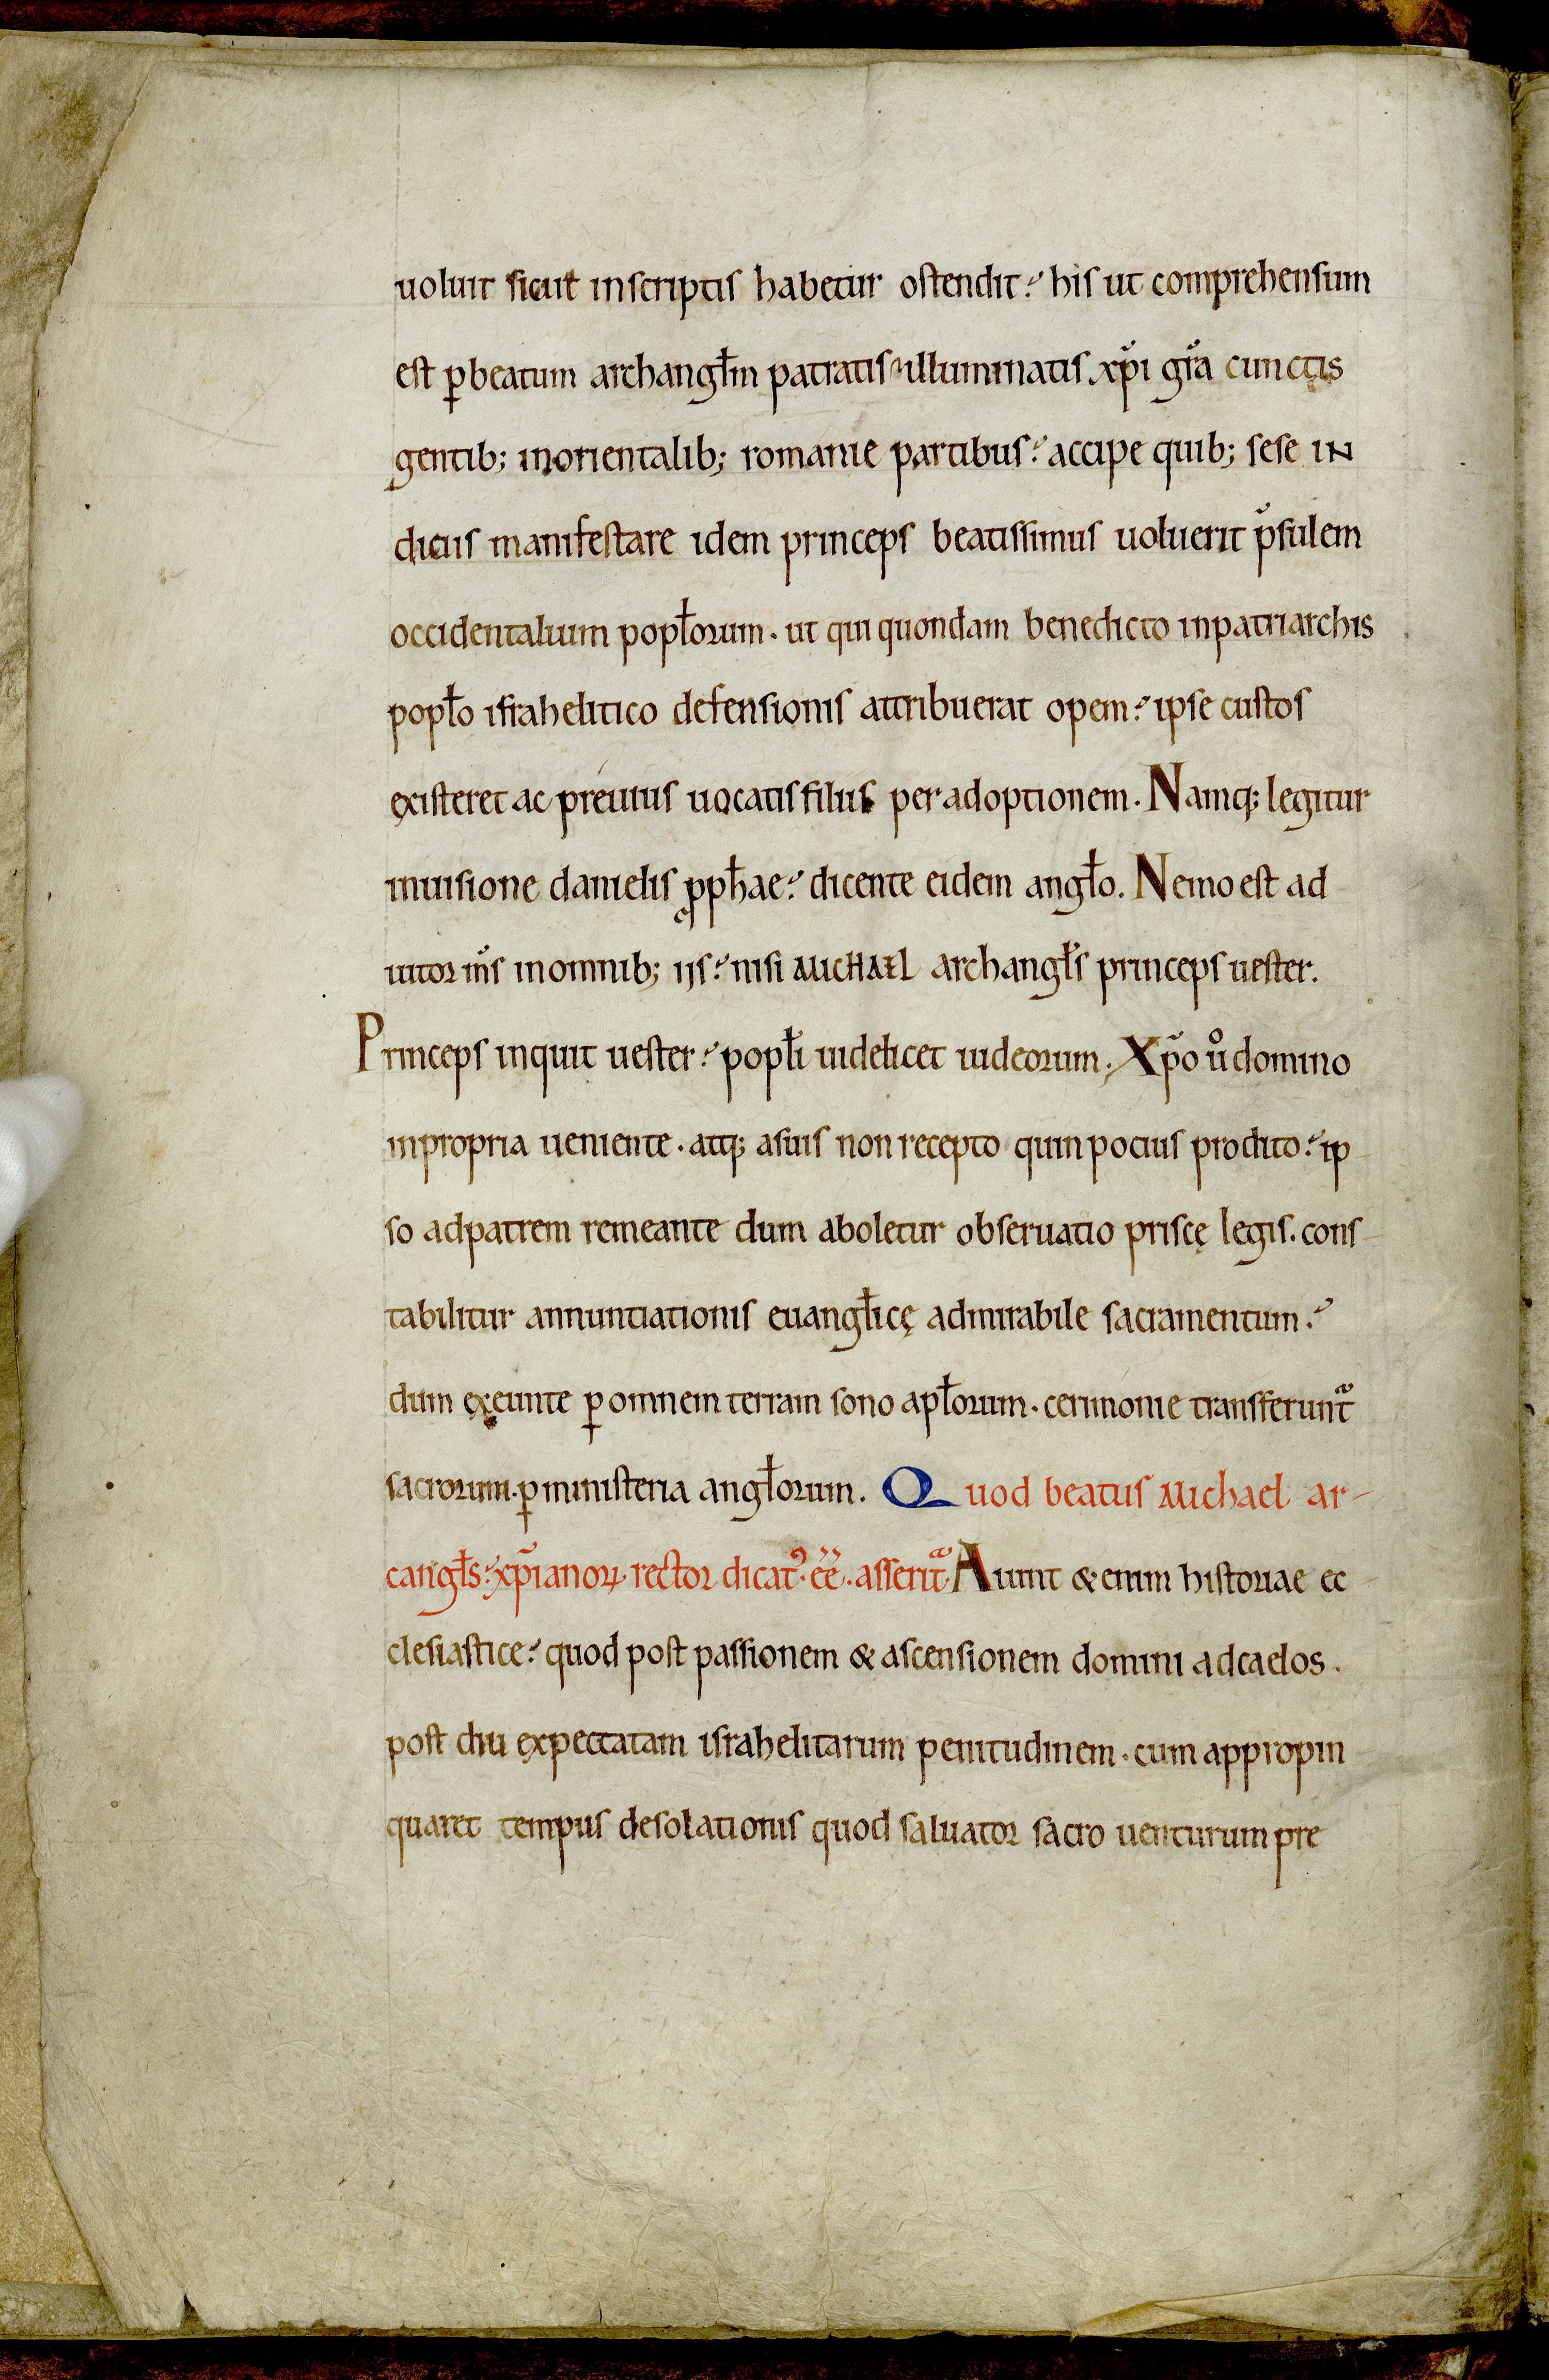 uoluit sicut inscriptis habetur ostendit. his ut comprehensum
est p̲beatum archangl̄m patratis illuminatis xp̄i gr̄a cunctis
gentib; inorientalib; romanie partibus. accipe quib; sese in
diciis manifestare idem princeps beatissimus uoluerit p̄sulem
occidentalium popl̄orum. ut qui quondam benedicto inpatriarchis
popl̄o israhelitico defensionis attribuerat opem. ipse custos
existeret ac preuius uocatis filiis per adoptionem. Namq; legitur
inuisione danielis ꝓph̄ae. dicente eidem angl̄o. Nemo est ad
iutor m̄s inomnib; iis. nisi MICHAEL archangl̄s princeps uester.
Princeps inquit uester. popl̄i uidelicet iudeorum. Xp̄o u̾ domino
inpropria ueniente. atq; asuis non recepto quin pocius prodito. ip
so adpatrem remeante dum aboletur obseruatio priscę legis. cons
tabilitur annuntiationis euangl̄icę admirabile sacramentum.
dum exeunte ꝑ omnem terram sono apl̄orum. cerimonie transferuntᷓ
sacrorum. ꝑ ministeria angl̄orum. Quod beatus Michael ar-
cangl̄s. xp̄ianoꝝ rector dicat᷒. ēē. asseritᷓ Aiunt & enim historiae ec
clesiastice. quod post passionem & ascensionem domini adcaelos.
post diu expectatam israhelitarum penitudinem. cum appropin
quaret tempus desolationis quod saluator sacro uenturum pre